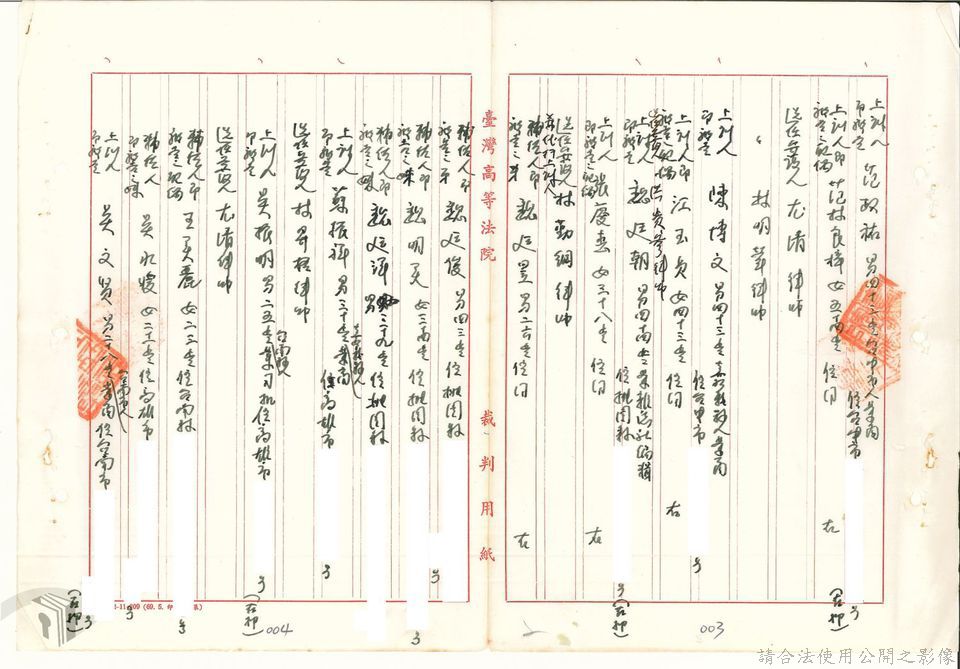 上訴人
即被告 范政祐 男四十三歲 業商 住台中市 號
(在押)
上訴人即
被告之配偶 范林良樺 女 住同 右
選任辯護人 尤清 律師
〃 林明華律師
上訴人
即被告 陳博文 男四十三歲 嘉義縣人業商 住台中市 號
上訴人即
被告之配偶 江玉貞 女四十三歲 住同 右
選任辯護人 洪貴參律師
上訴人
即被告 魏廷朝 男 歲 業雜誌社編輯 住桃園縣 號
(在押)
上訴人即
被告之配偶 張慶惠 女三十八歲 住同 右
選任辯護人
兼代行上訴人 林勤綱律師
輔佐人即
被告之弟 魏廷昱 男 歲 住同 右
臺灣高等法院 裁判用紙
003
輔佐人即
被告之弟 魏廷俊 男四三歲 住桃園縣 號
輔佐人即
被告之妹 魏明美 女 歲 住桃園縣 號
輔佐人即
被告之 魏廷洋 男三九歲 住桃園縣
上訴人
即被告 蘇振祥 男三十歲 嘉義縣人 業商 住高雄市 號
選任辯護人 林 律師
上訴人
即被告 吳振明 男二五歲 台南縣人 業司機 住高雄市 號
(在押)
選任辯護人 尤清律師
輔佐人即
被告之配偶 王美麗 女二三歲 住台南縣 號
輔佐人即
被告之妹 吳 女二十一歲 住高雄市 號
上訴人
即被告 吳文賢 男二十八歲 台南市人 業商 住台南市 號
(在押)
(69.5.印
004
請合法使用公開之影像